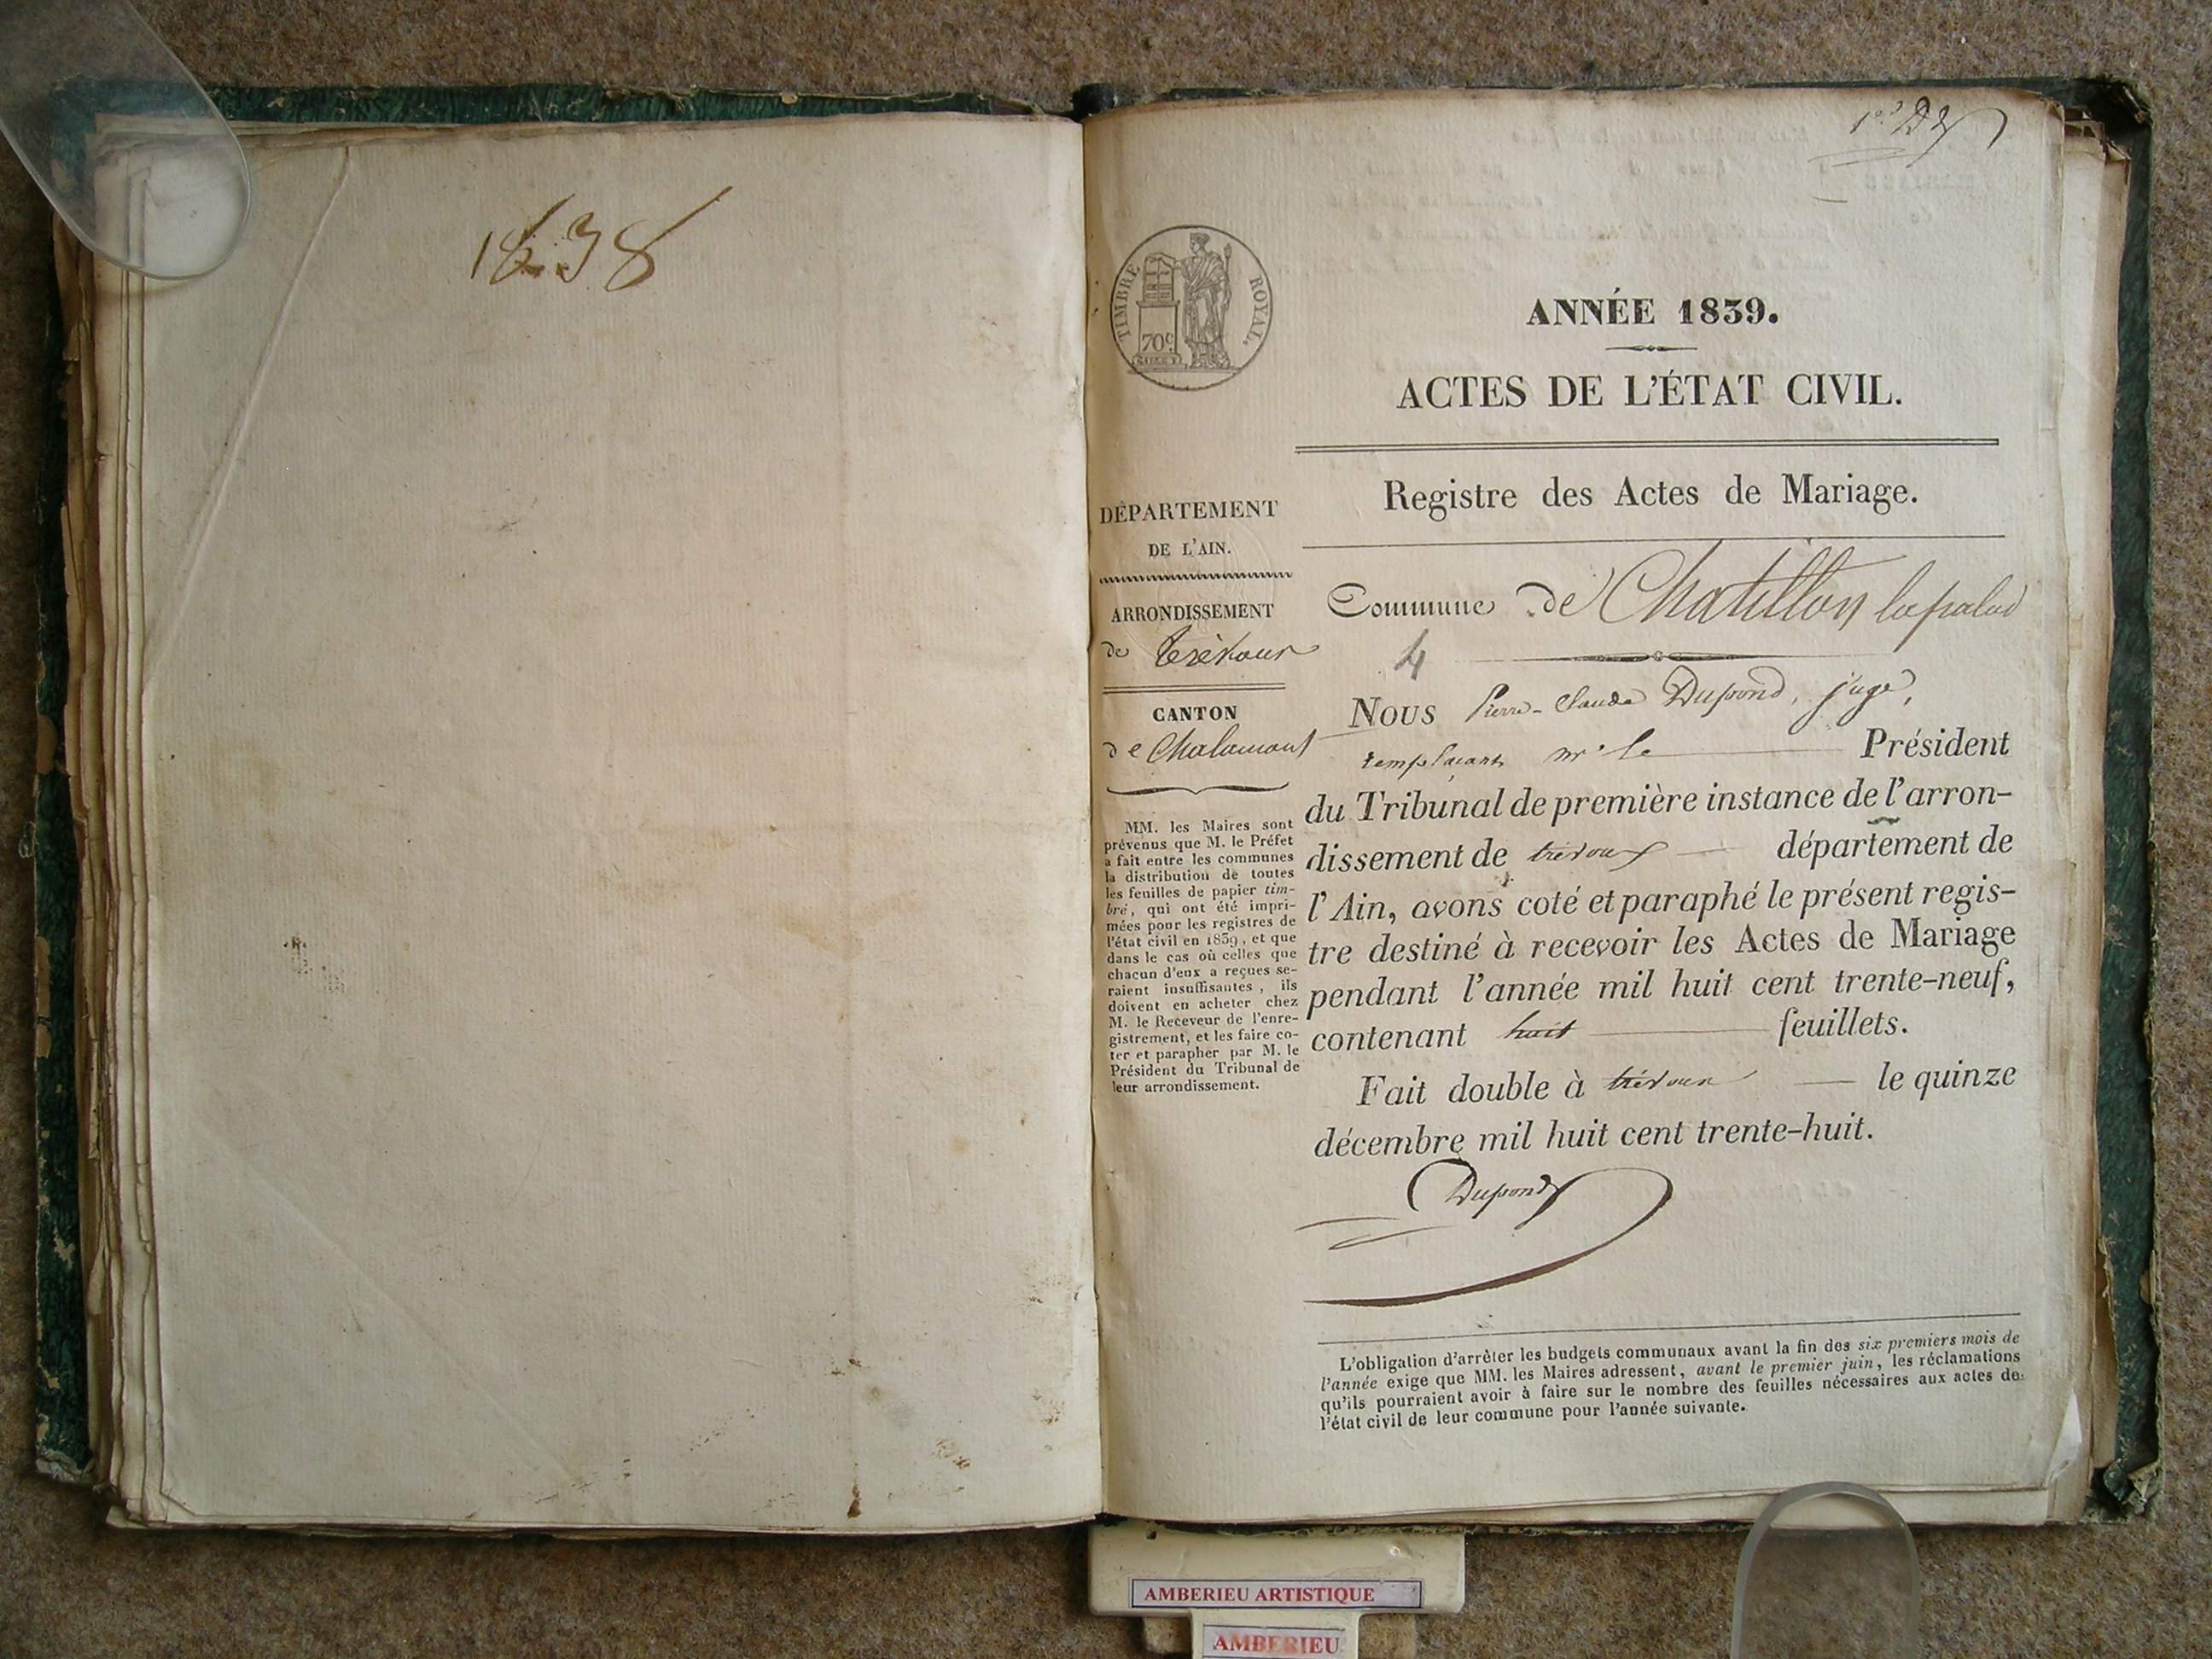 1838
1er D
TIMBRE ROYAL.
70c
ANNÉE 1839.
ACTES DE L'ÉTAT CIVIL.
Registre des Actes de Mariage.
DÉPARTEMENT
DE L'AIN.
ARRONDISSEMENT
de Trévoux
CANTON
de Chalamont
MM. les Maires sont
prévenus que M. le Préfet
a fait entre les communes
la distribution de toutes
les feuilles de papier tim-
bré, qui ont été impri-
mées pour les registres de
l'état civil en 1839, et que
dans le cas où celles que
chacun d'eux a reçues se-
raient insuffisantes, ils
doivent en acheter chez
M. le Receveur de l'enre-
gistrement, et les faire co-
ter et parapher par M. le
Président du Tribunal de
leur arrondissement.
Commune de Chatillon lapalud
4
Nous Pierre-Claude Dupond, juge,
remplaçant mr le Président
du Tribunal de première instance de l'arron-
dissement de trévoux département de
l'Ain, avons coté et paraphé le présent regis-
tre destiné à recevoir les Actes de Mariage
pendant l'année mil huit cent trente-neuf,
contenant huit feuillets.
Fait double à trévoux le quinze
décembre mil huit cent trente-huit.
Dupond
L'obligation d'arrêter les budgets communaux avant la fin des six premiers mois de
l'année exige que MM. les Maires adressent, avant le premier juin, les réclamations
qu'ils pourraient avoir à faire sur le nombre des feuilles nécessaires aux actes de
l'état civil de leur commune pour l'année suivante.
AMBERIEU ARTISTIQUE
AMBERIEU